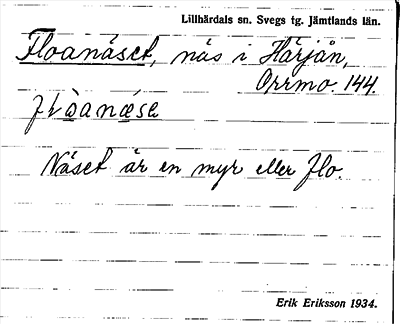 Lillhärdals sn. Svegs tg. Jämtlands län.
Floanäset, näs i Härjån,
Orrmo. 144
flòanæ̀se
Näset är en myr eller flo.
Erik Eriksson 1934.